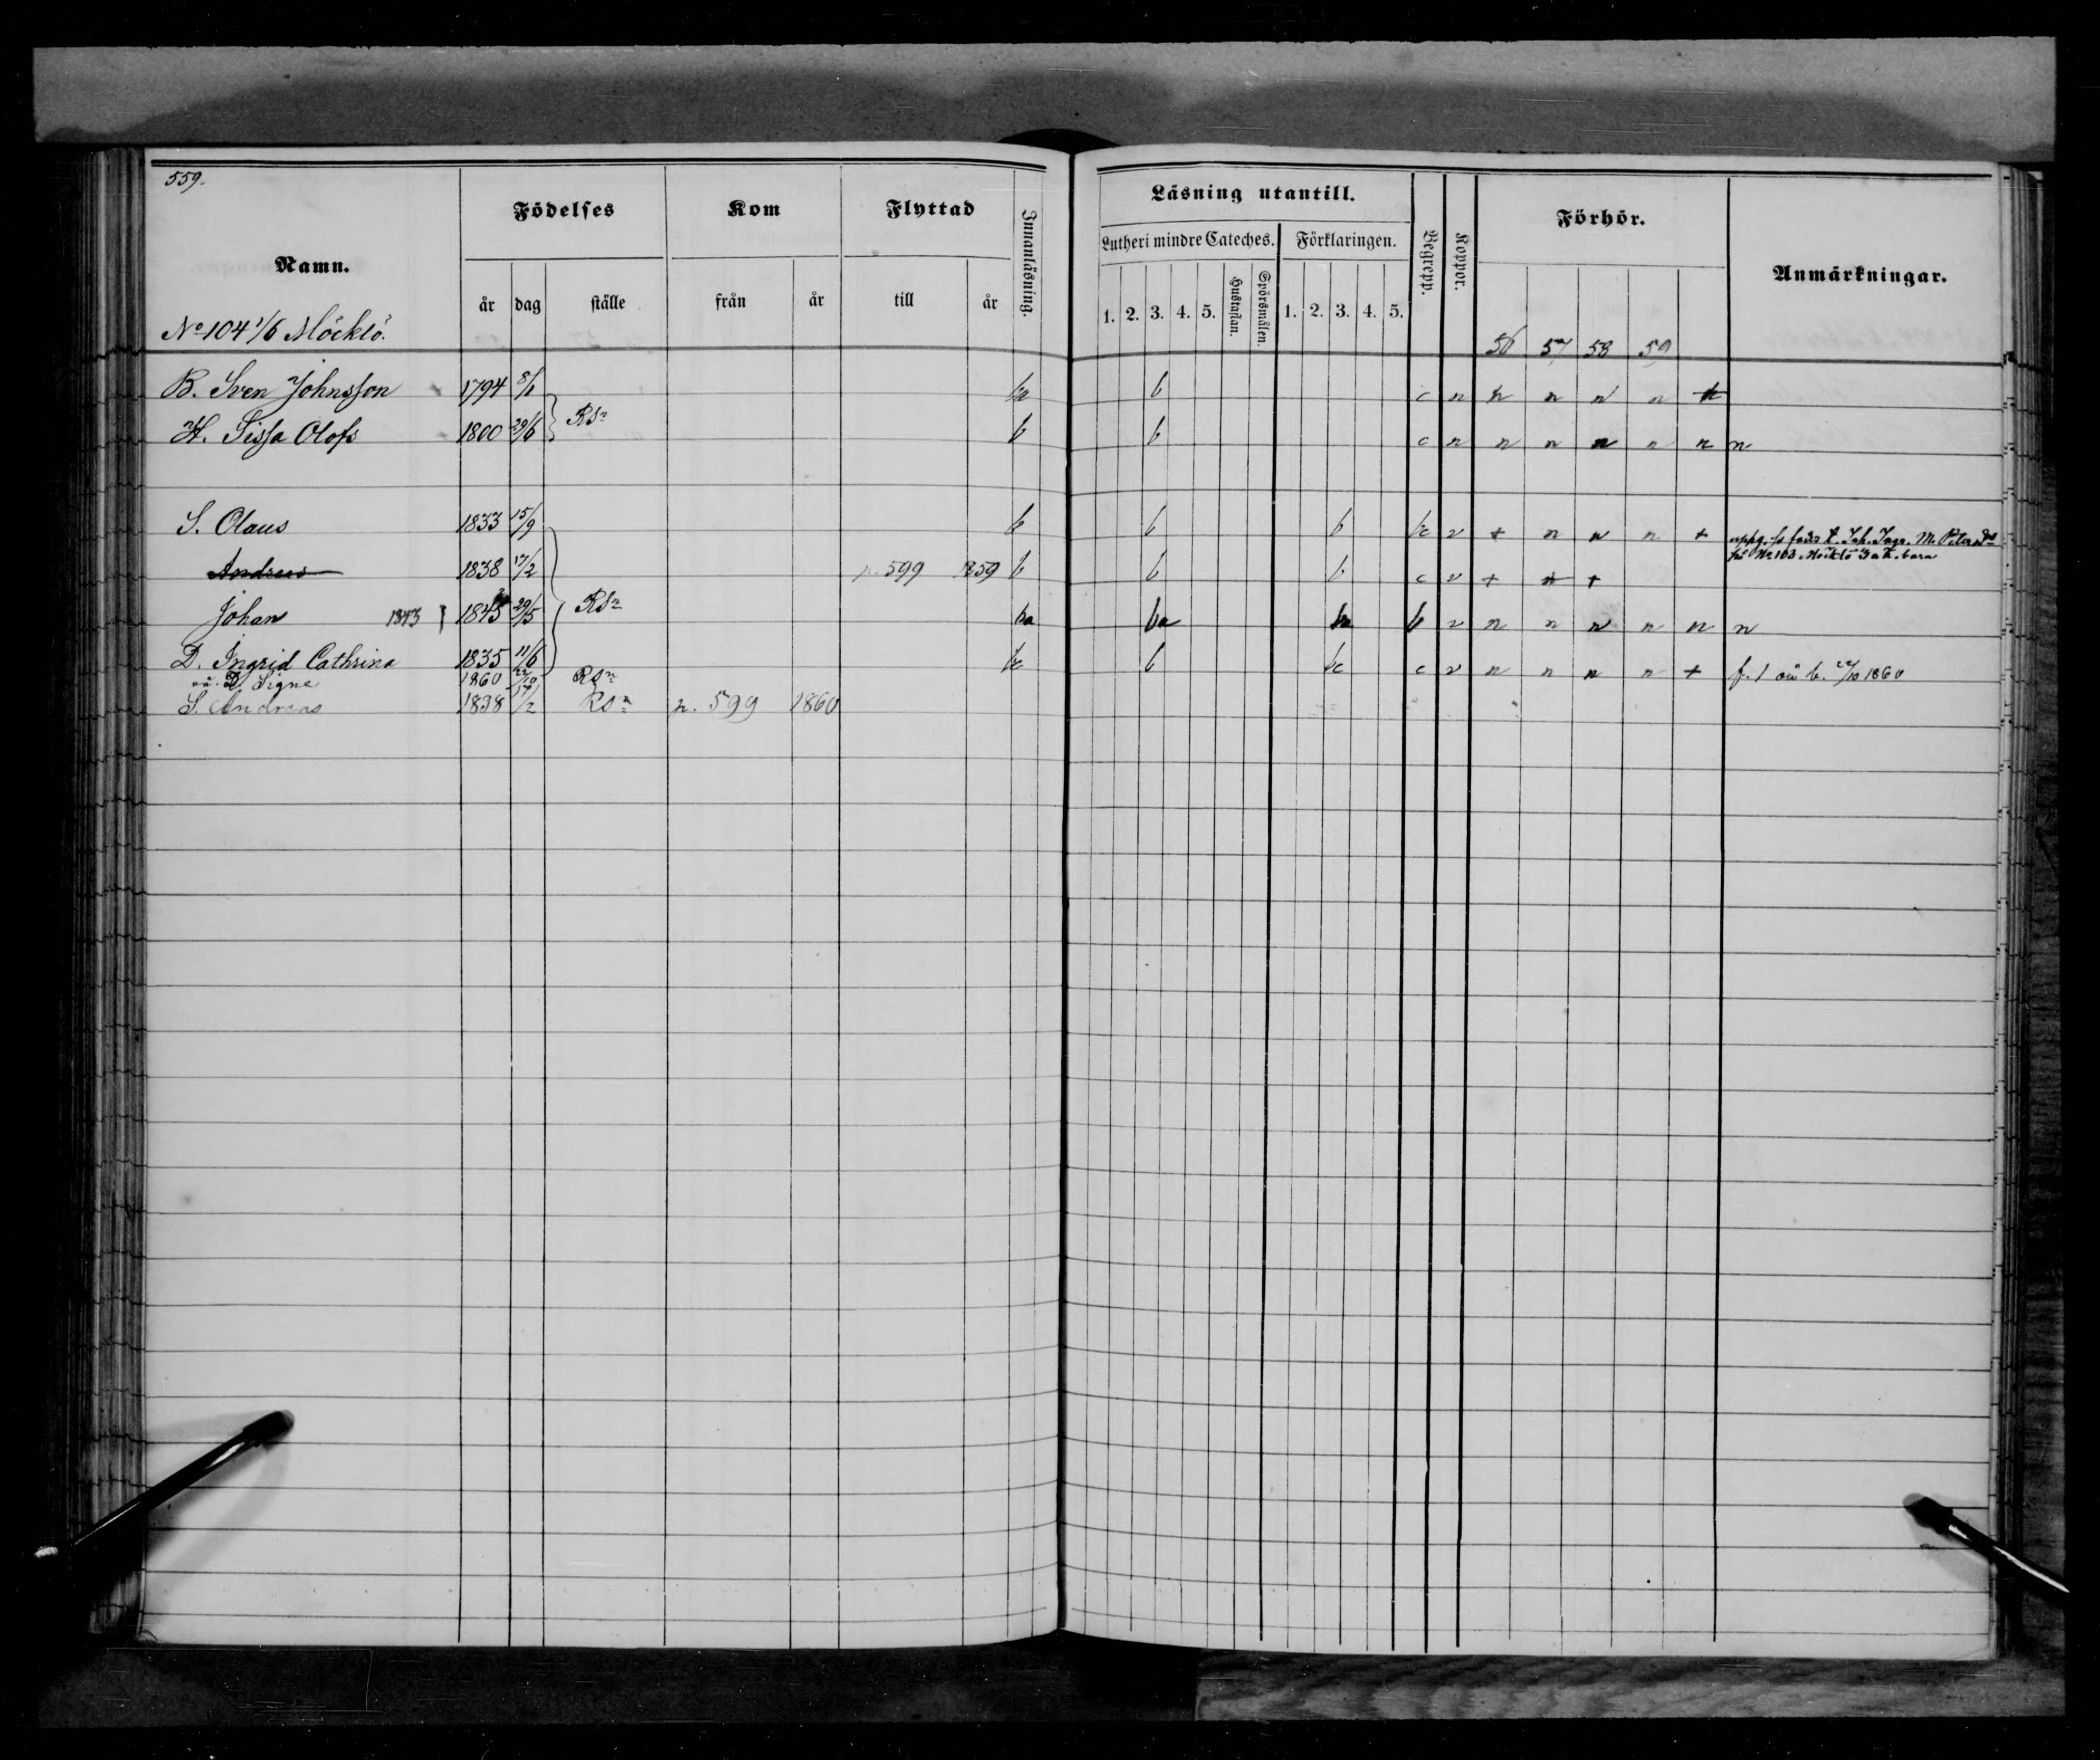 559.
Namn. Födelses Kom Flyttad Innanläsning. Läsning utantill. Begrepp. Koppor. Förhör. Anmärkningar.
Lutheri mindre Cateches. Förklaringen.
år dag ställe från år till år 1. 2. 3. 4. 5. Hustaflan. Spörsmålen. 1. 2. 3. 4. 5.
No 104 1/6 Möcklö. 56 57 58 59
B. Sven Johnsson 1794 8/1 b c n n n n n
Rsn
H. Sissa Olofs 1800 29/6 b b c n n n n n n n
S. Olaus 1833 15/9 b b b bc v + n n n +
uppg. Joh. Ingr. M. Petersdr
på No 103 Möcklö barn
Andreas 1838 17/2 p. 599 1859 b b b c v + + +
Johan 1843 1845 29/5 Rsn ba ba ba b v n n n n n n
D. Ingrid Cathrina 1835 11/6 bc b bc c v n n n n + f. 1 oä b. 22/10 1860
oä. D. Signe 1860 22/10 Rsn
S. Andreas 1838 17/2 Rsn p. 599 1860